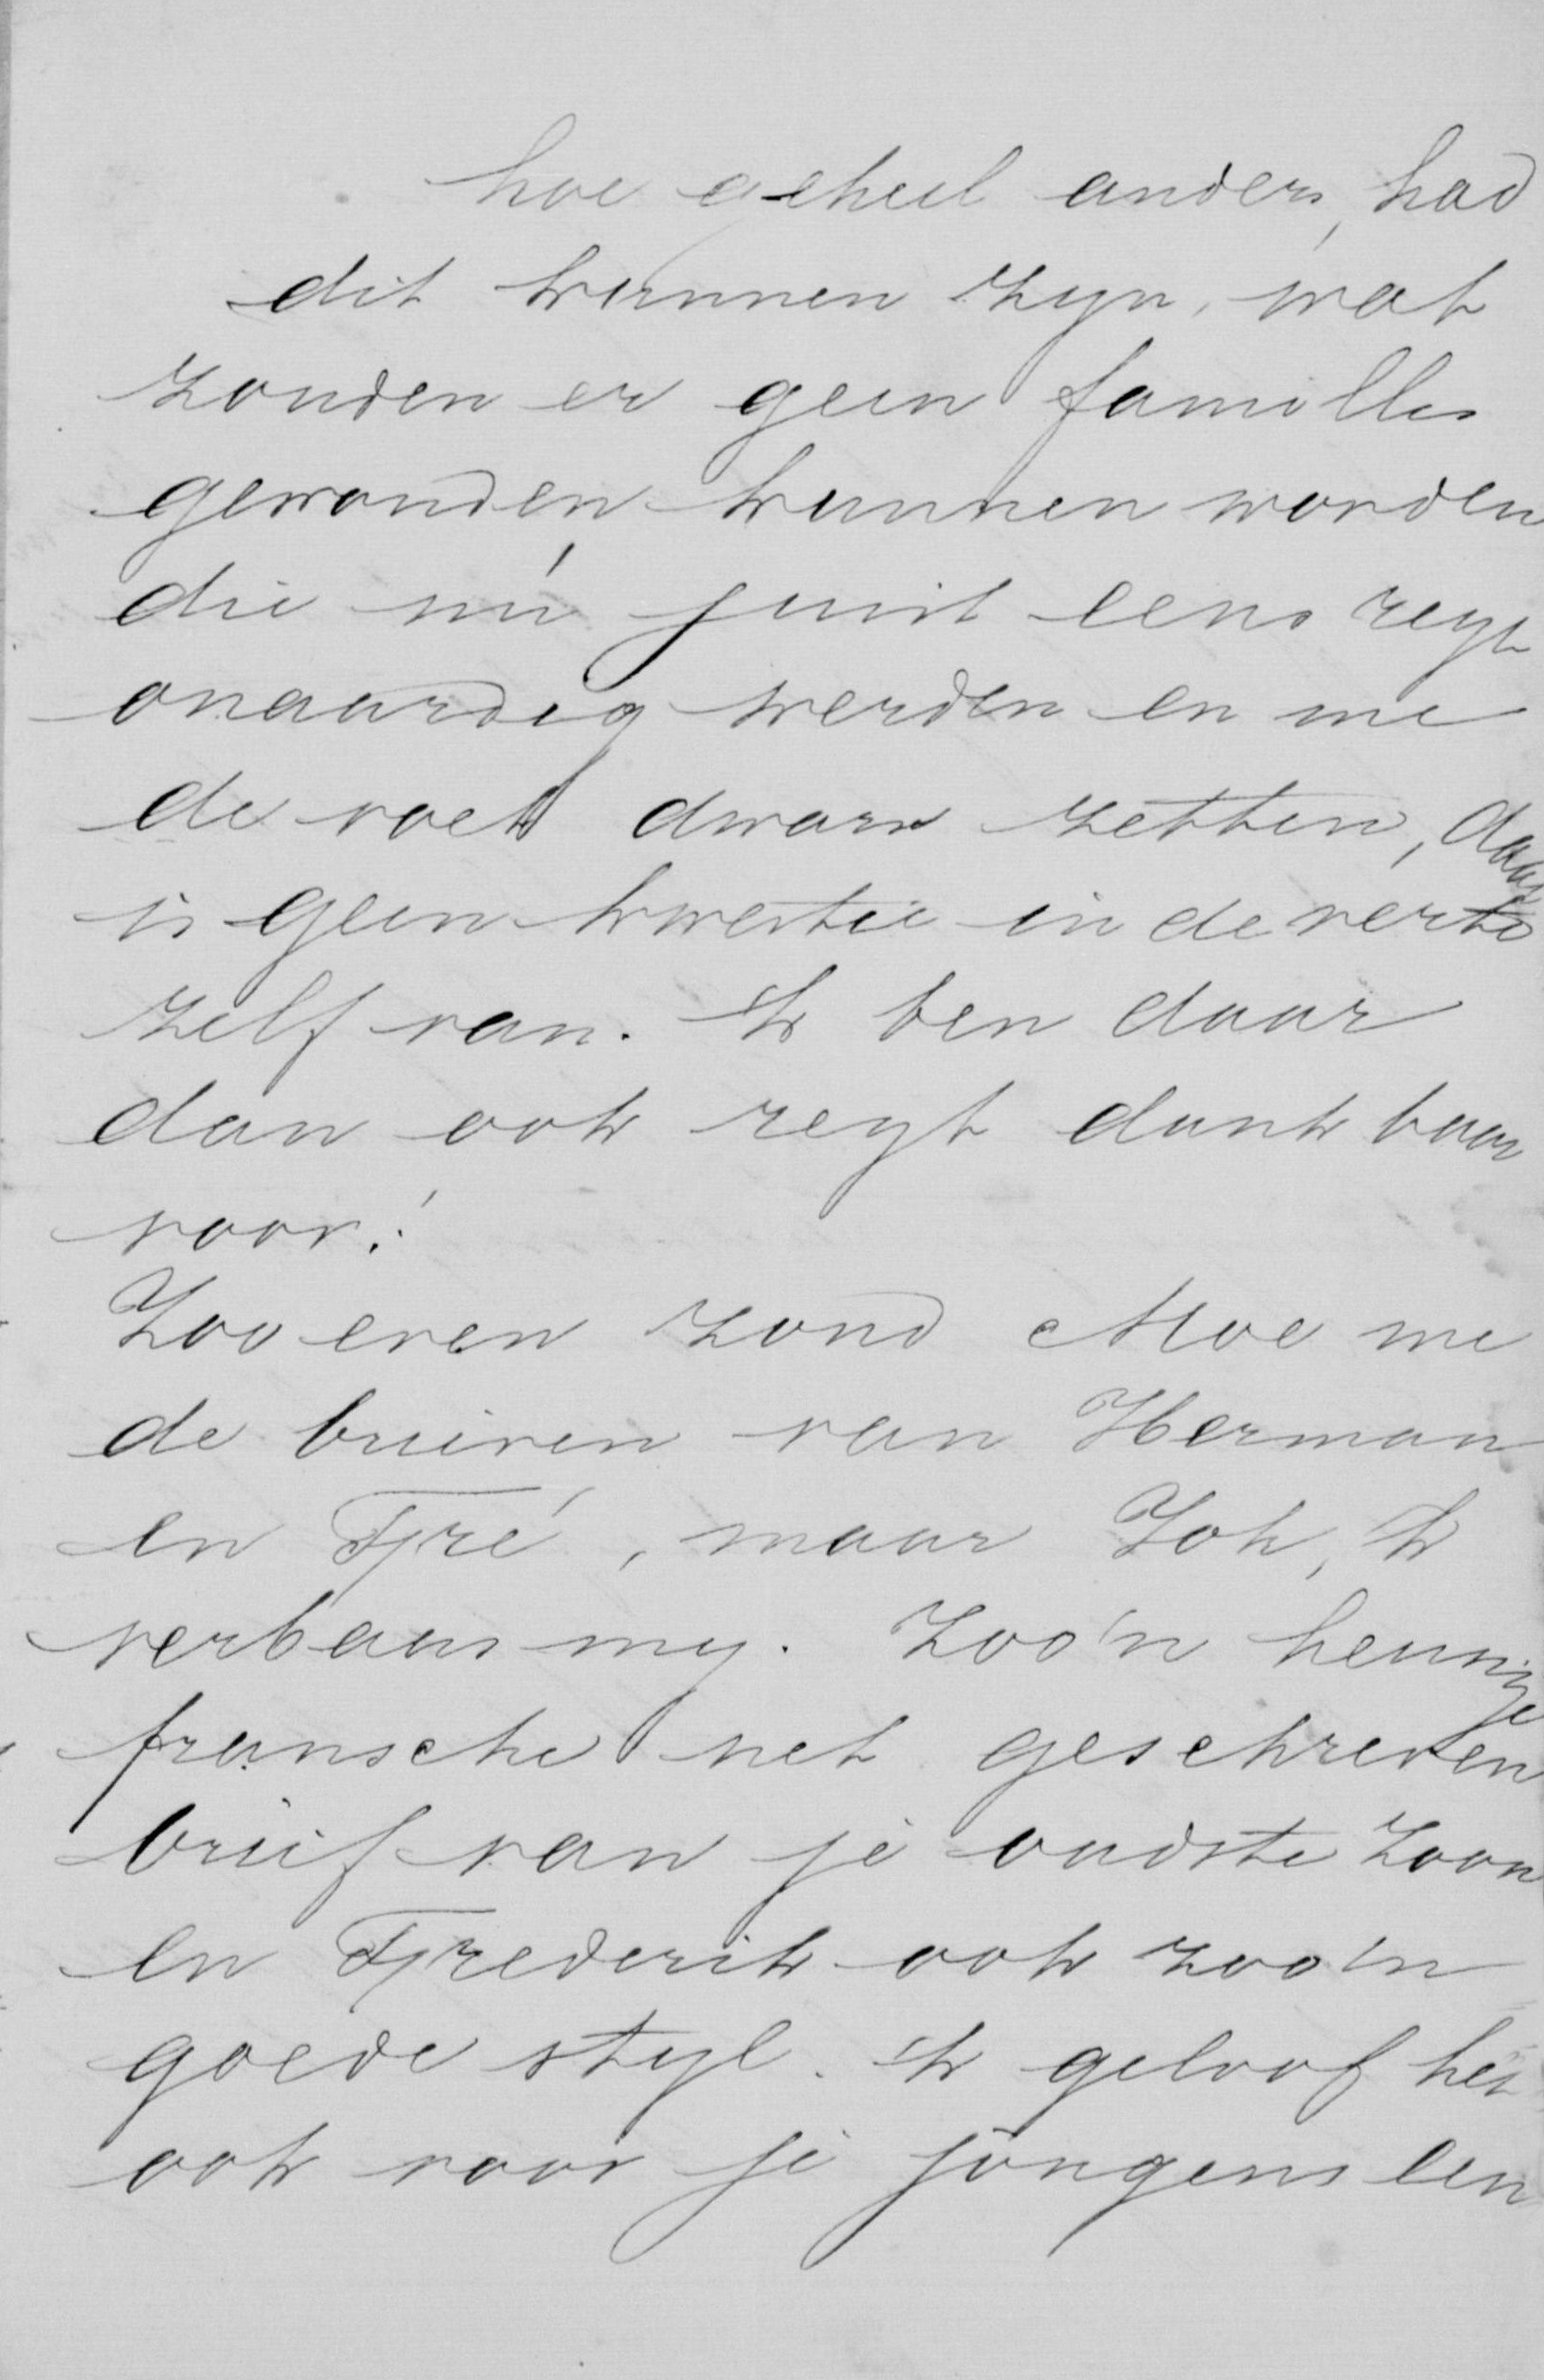 hoe geheel anders, had
dit kunnen zyn, wat
zouden er geen famillies
gevonden kunnen worden
die nú juist eens regt
onaardig werden en me
de voet dwars zetten, daar
is geen kwestie in de verte
zelf van. Ik ben daar
dan ook regt dankbaar
voor!
Zoo even zond Moe me
de brieven van Herman
en Fré, maar Joh, ik
verbaas my. Zoo'n heusche
fransche net geschreven
brief van je oudste zoon
en Frederik ook zoo'n
goede styl. Ik geloof het
ook voor je jongens een